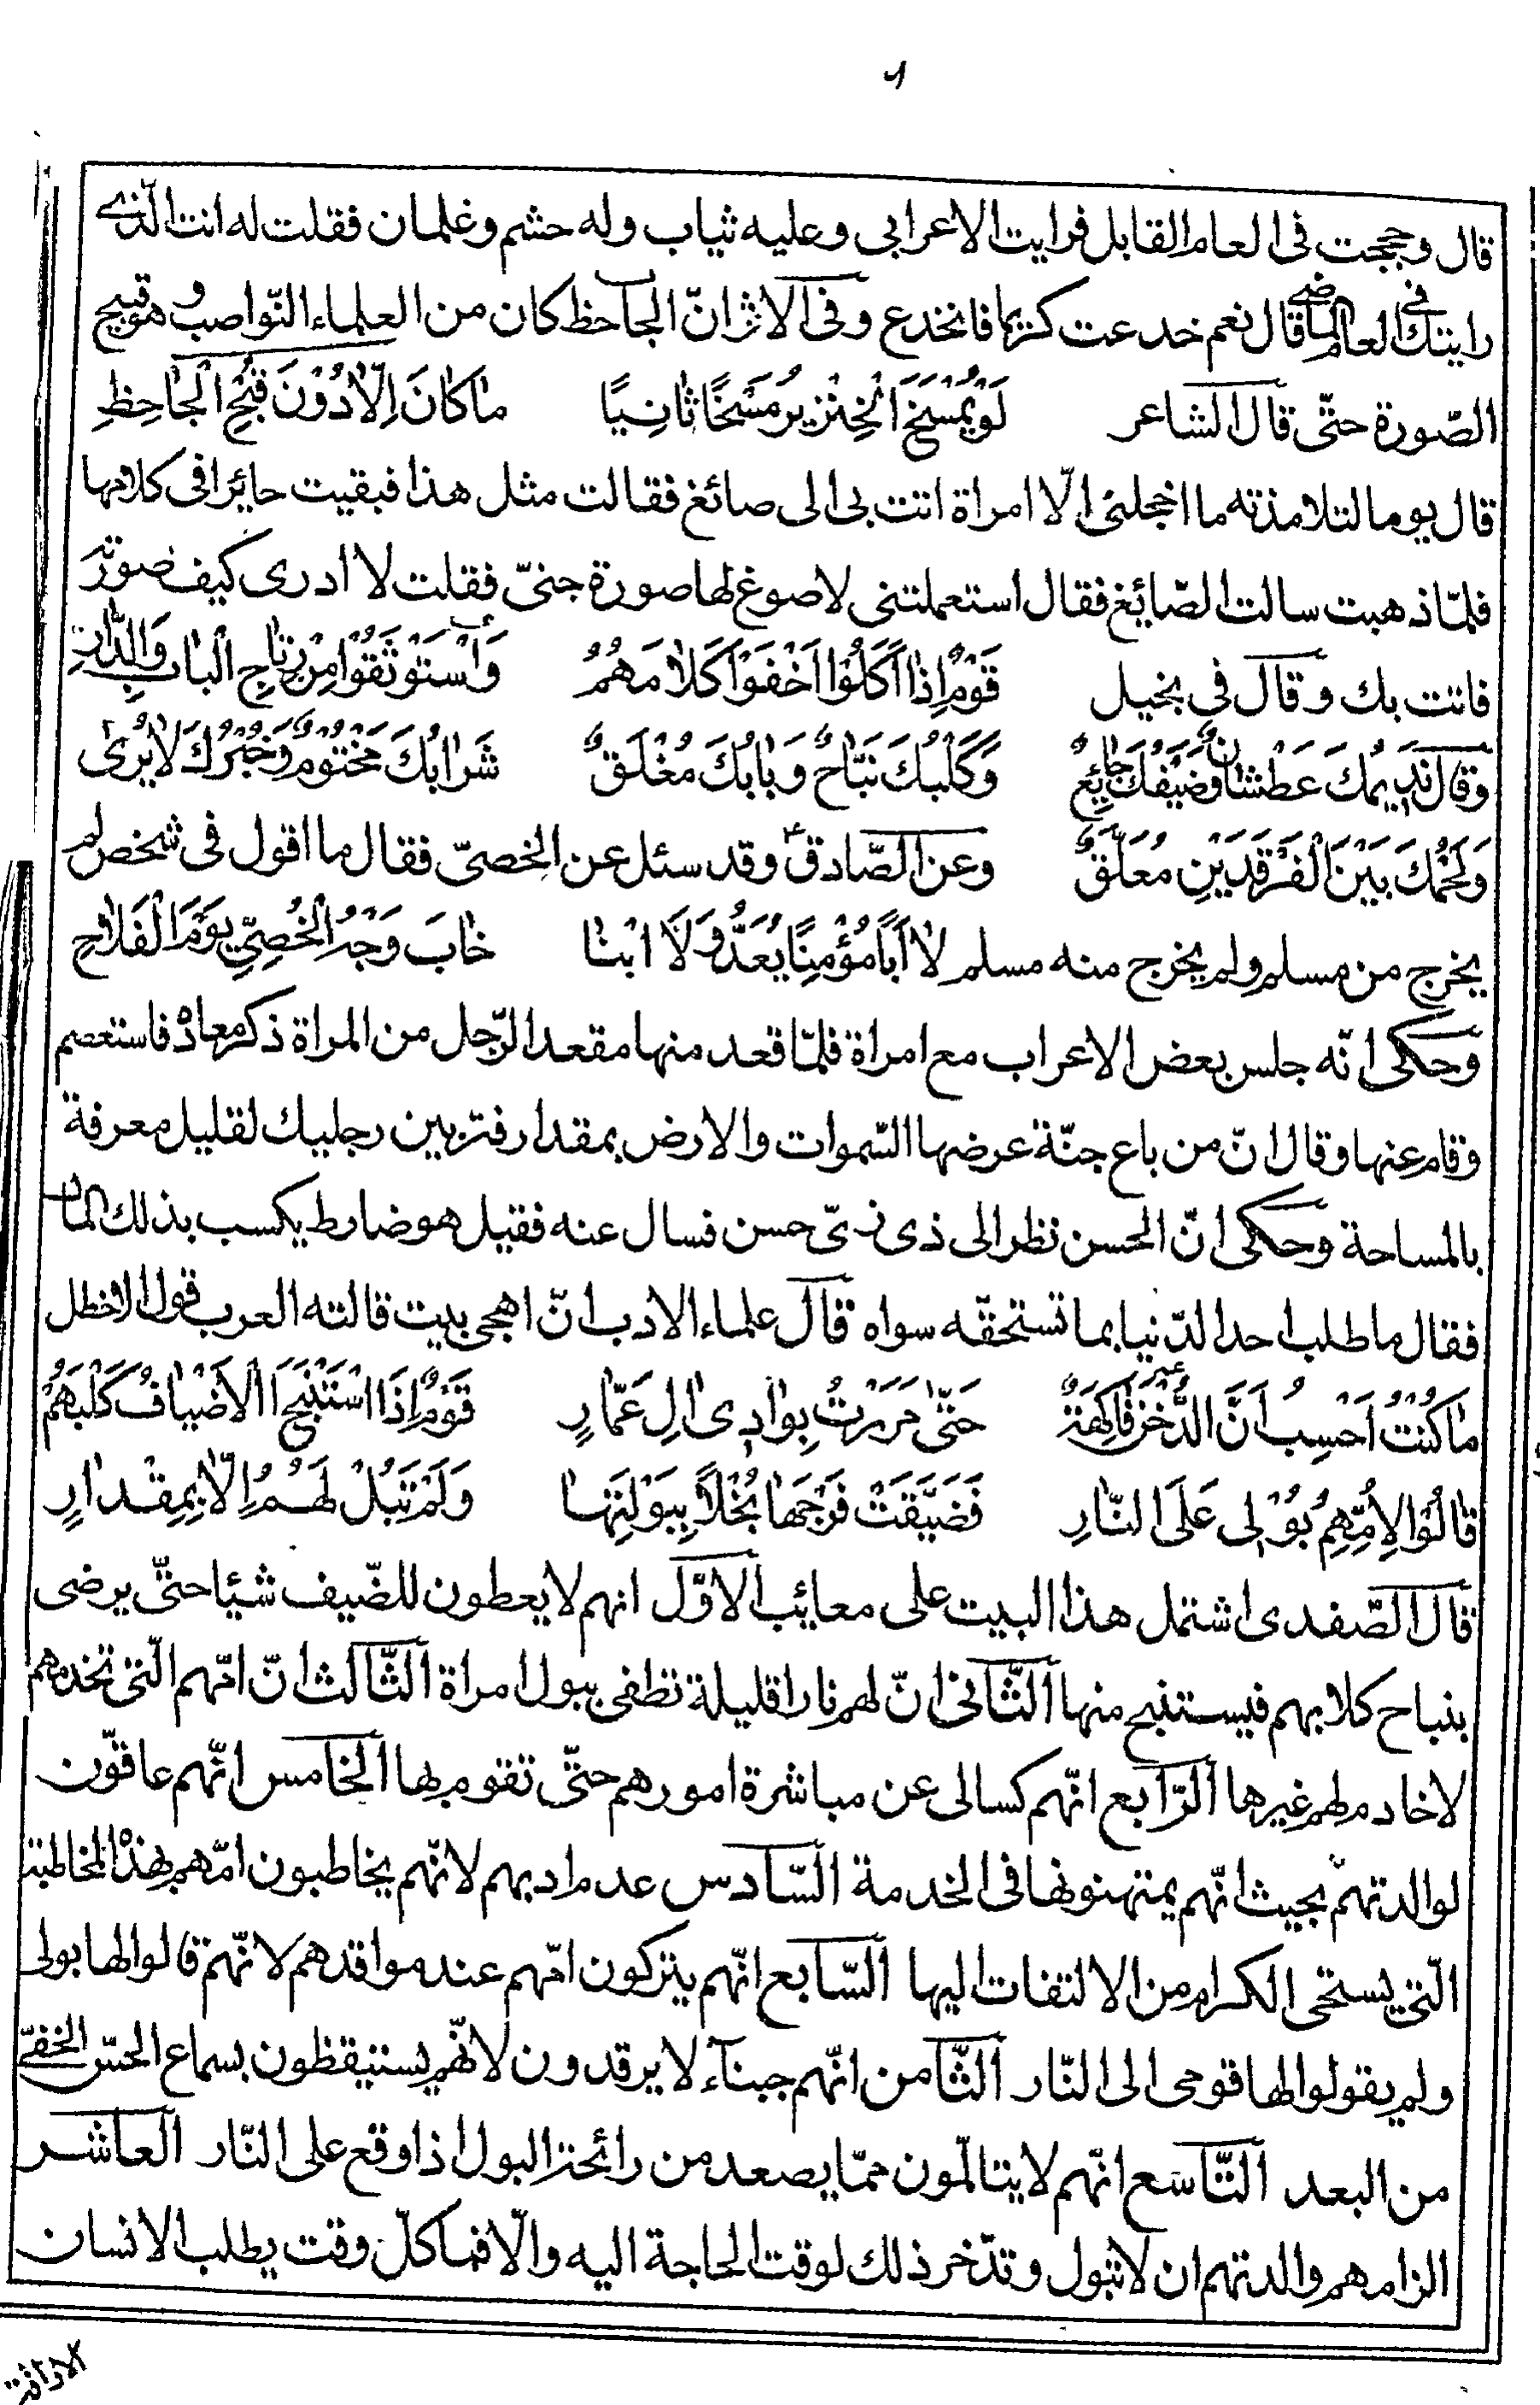 ٦
قال وحججت فى العام القابل فرايت الاعرابى وعليه ثياب وله حشم وغلمان فقلت له انت الّذى
رايتك فى العام الماضى قال نعم خدعت كريما فانخدع وفى الاثر انّ الجاحظ كان من العلماء النّواصب وهو قبيح
الصّورة حتّى قال الشاعر لَوْ يُمْسَخُ الْخِنْزِيرُ مَسْخًا ثانِيًا ماٰ كاٰنَ اِلّاٰ دُوْنَ قُبْحِ الْجاٰحِظِ
قال يوما لتلامذته ما اخجلنى الّا امراة اتت بى الى صائغ فقالت مثل هذا فبقيت حائرا فى كلامها
فلمّا ذهبت سالت الصّايغ فقال استعملتنى لاصوغ لها صورة جنىّ فقلت لا ادرى كيف صورته
فاتت بك وقال فى بخيل قَوْمٌ اِذاٰ اَكَلُوْا اَخْفَوْا كَلاٰمَهُمْ وَاسْتَوْثَقُوْا مِنْ رِتاٰجِ الْباٰبِ وَالدّاٰرِ
وقال نَدِيمُكَ عَطْشاٰنٌ وَضَيْفُكَ جاٰئِعٌ وَكَلْبُكَ نَبّاٰحٌ وَبابُكَ مُغْلَقٌ شَراٰبُكَ مَخْتُوْمٌ وَخُبْزُكَ لاٰ يُرىٰ
وَلَحْمُكَ بَيْنَ الْفَرْقَدَيْنِ مُعَلَّقٌ وعن الصّادق ع وقد سئل عن الخصىّ فقال ما اقول فى شخص لم
يخرج من مسلم ولم يخرج منه مسلم لاٰ اَبًا مُؤْمِنًا يُعَدُّ وَلاَ ابْنا خاٰبَ وَجْهُ الْخُصِيِّ يَوْمَ الْفَلاٰحِ
وحكى انّه جلس بعض الاعراب مع امراة فلمّا قعد منها مقعد الرّجل من المراة ذكر معاده فاستعصم
وقام عنها وقال انّ من باع جنّة عرضها السّموات والارض بمقدار فتر بين رجليك لقليل معرفة
بالمساحة وحكى انّ الحسن نظر الى ذى زىّ حسن فسال عنه فقيل هو ضارط يكسب بذلك المال
فقال ما طلب احد الدّنيا بما تستحقّه سواه قال علماء الادب انّ اهجى بيت قالته العرب قول الاخطل
ماٰ كُنْتُ اَحْسِبُ اَنَّ الدُّخْنَ فاٰكِهَةٌ حَتّىٰ مَرَرْتُ بِواٰدِى اٰلِ عَمّاٰرٍ قَوْمٌ اِذَا اسْتَنْبَحَ الْاَضْيٰافُ كَلْبَهُمْ
قاٰلُوْا لِاُمِّهِمْ بُوْلِى عَلَى النّاٰرِ فَضَيَّقَتْ فَرْجَهاٰ بُخْلاً بِبَوْلَتِهاٰ وَلَمْ تَبُلْ لَهُمْ اِلّاٰ بِمِقْداٰرٍ
قال الصّفدى اشتمل هذا البيت على معائب الاوّل انهم لا يعطون للضّيف شيئا حتّى يرضى
بنباح كلابهم فيستنبح منها الثّانى انّ لهم نارا قليلة تطفى ببول امراة الثّالث انّ امّهم الّتى تخدمهم
لا خادم لهم غيرها الرّابع انّهم كسالى عن مباشرة امورهم حتّى تقوم بها الخامس انّهم عاقّون
لوالدتهم بحيث انّهم يمتهنونها فى الخدمة السّادس عدم ادبهم لانّهم يخاطبون امّهم بهذه المخاطبة
الّتى يستحى الكرام من الالتفات اليها السّابع انّهم يتركون امّهم عند مواقدهم لانّهم قالوا لها بولى
ولم يقولوا لها قومى الى النّار الثّامن انّهم جبناء لا يرقدون لانّهم يستيقظون بسماع الحسّ الخفىّ
من البعد التّاسع انّهم لا يتالّمون ممّا يصعد من رائحة البول اذا وقع على النّار العاشر
الزامهم والدتهم ان لا تبول وتدّخر ذلك لوقت الحاجة اليه والّا فما كلّ وقت يطلب الانسان
الاراقة